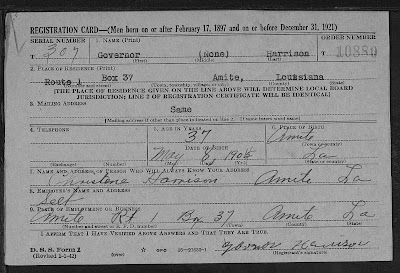 REGISTRATION CARD—(Men born on or after February 17, 1897 and on or before December 31, 1921)
SERIAL NUMBER 1. NAME (Print) ORDER NUMBER
T 307 Governor (None) Harrison 10880
(First) (Middle) (Last)
2. PLACE OF RESIDENCE (Print)
Route 1 Box 37 Amite, Louisiana
[THE PLACE OF RESIDENCE GIVEN ON THE LINE ABOVE WILL DETERMINE LOCAL BOARD
JURISDICTION; LINE 2 OF REGISTRATION CERTIFICATE WILL BE IDENTICAL]
3. MAILING ADDRESS
Same
[Mailing address if other than place indicated on line 2. If same insert word same]
4. TELEPHONE 5. AGE IN YEARS 6. PLACE OF BIRTH
37 Amite
DATE OF BIRTH (Town or county)
May 8 1904 La
(Exchange) (Number) (Mo.) (Day) (Yr.) (State or country)
7. NAME AND ADDRESS OF PERSON WHO WILL ALWAYS KNOW YOUR ADDRESS
Harrison Amite La
8. EMPLOYER'S NAME AND ADDRESS
Self
9. PLACE OF EMPLOYMENT OR BUSINESS
Amite Rt 1 Box 37 Amite La
(Number and street or R. F. D. number) (Town) (County) (State)
I AFFIRM THAT I HAVE VERIFIED ABOVE ANSWERS AND THAT THEY ARE TRUE.
D. S. S. Form 1
(Revised 1-1-42) (over) 16—21630-1
(Registrant's signature)